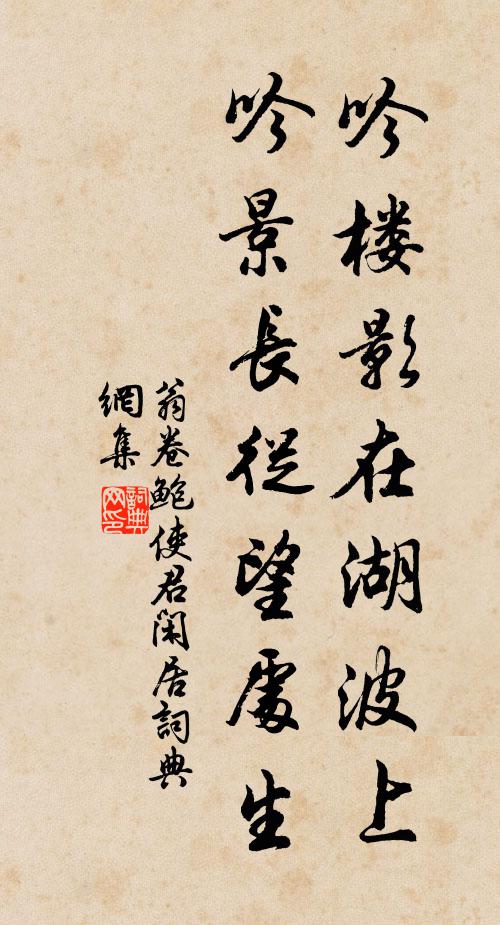 吟楼影在湖波上
吟景長從望處生
翁卷鮑使君閑居詞典
網集
詞典
网印